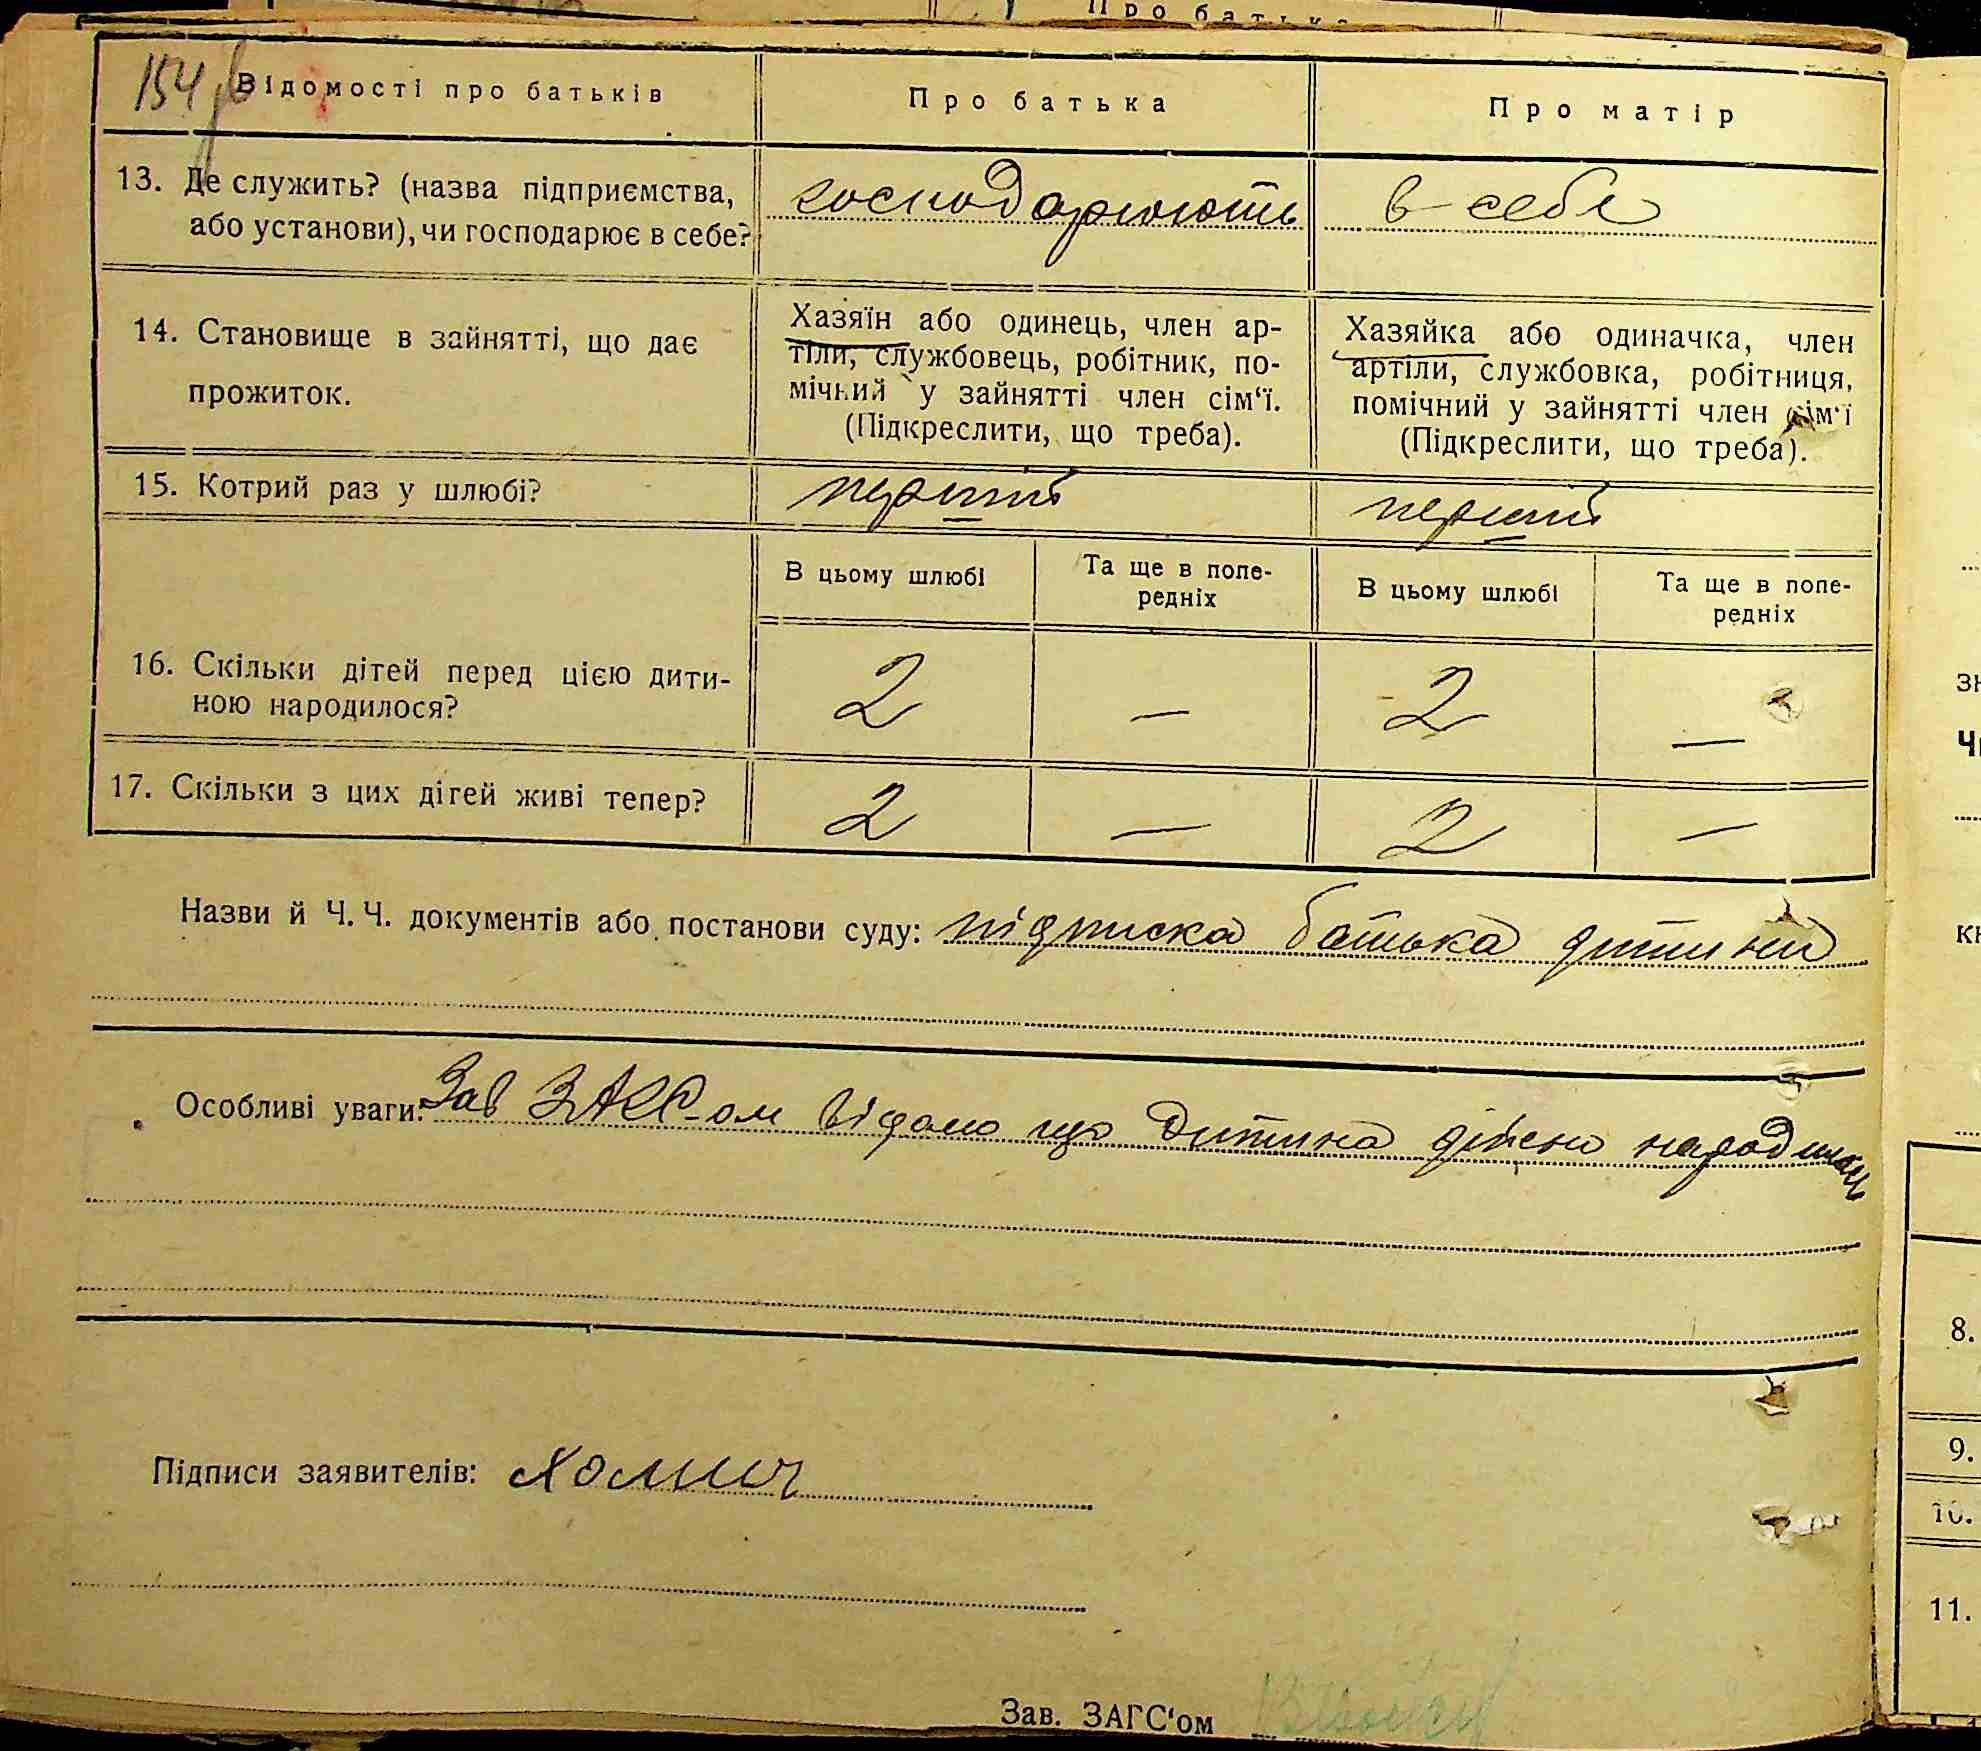 Про батька
154
Відомості про батьків
Про батька
Про матір
13. Де служить? (назва підприємства,
або установи), чи господарює в себе?
господарюють
в себе
14. Становище в зайнятті, що дає
прожиток.
Хазяїн або одинець, член ар-
тіли, службовець, робітник, по-
мічний у зайнятті член сім‘ї.
(Підкреслити, що треба).
Хазяйка або одиначка, член
артіли, службовка, робітниця,
помічний у зайнятті член сім‘ї
(Підкреслити, що треба).
15. Котрий раз у шлюбі?
перший
перший
В цьому шлюбі
Та ще в попе-
редніх
В цьому шлюбі
Та ще в попе-
редніх
16. Скільки дітей перед цією дити-
ною народилося?
2
—
2
—
17. Скільки з цих дітей живі тепер?
2
—
2
—
Назви й Ч. Ч. документів або постанови суду: підписка батька дитини
Особливі уваги: Зав ЗАГС-ом відомо що дитина дійсно народилась
Підписи заявителів: Хомич
Зав. ЗАГС‘ом
8.
9.
10.
11.